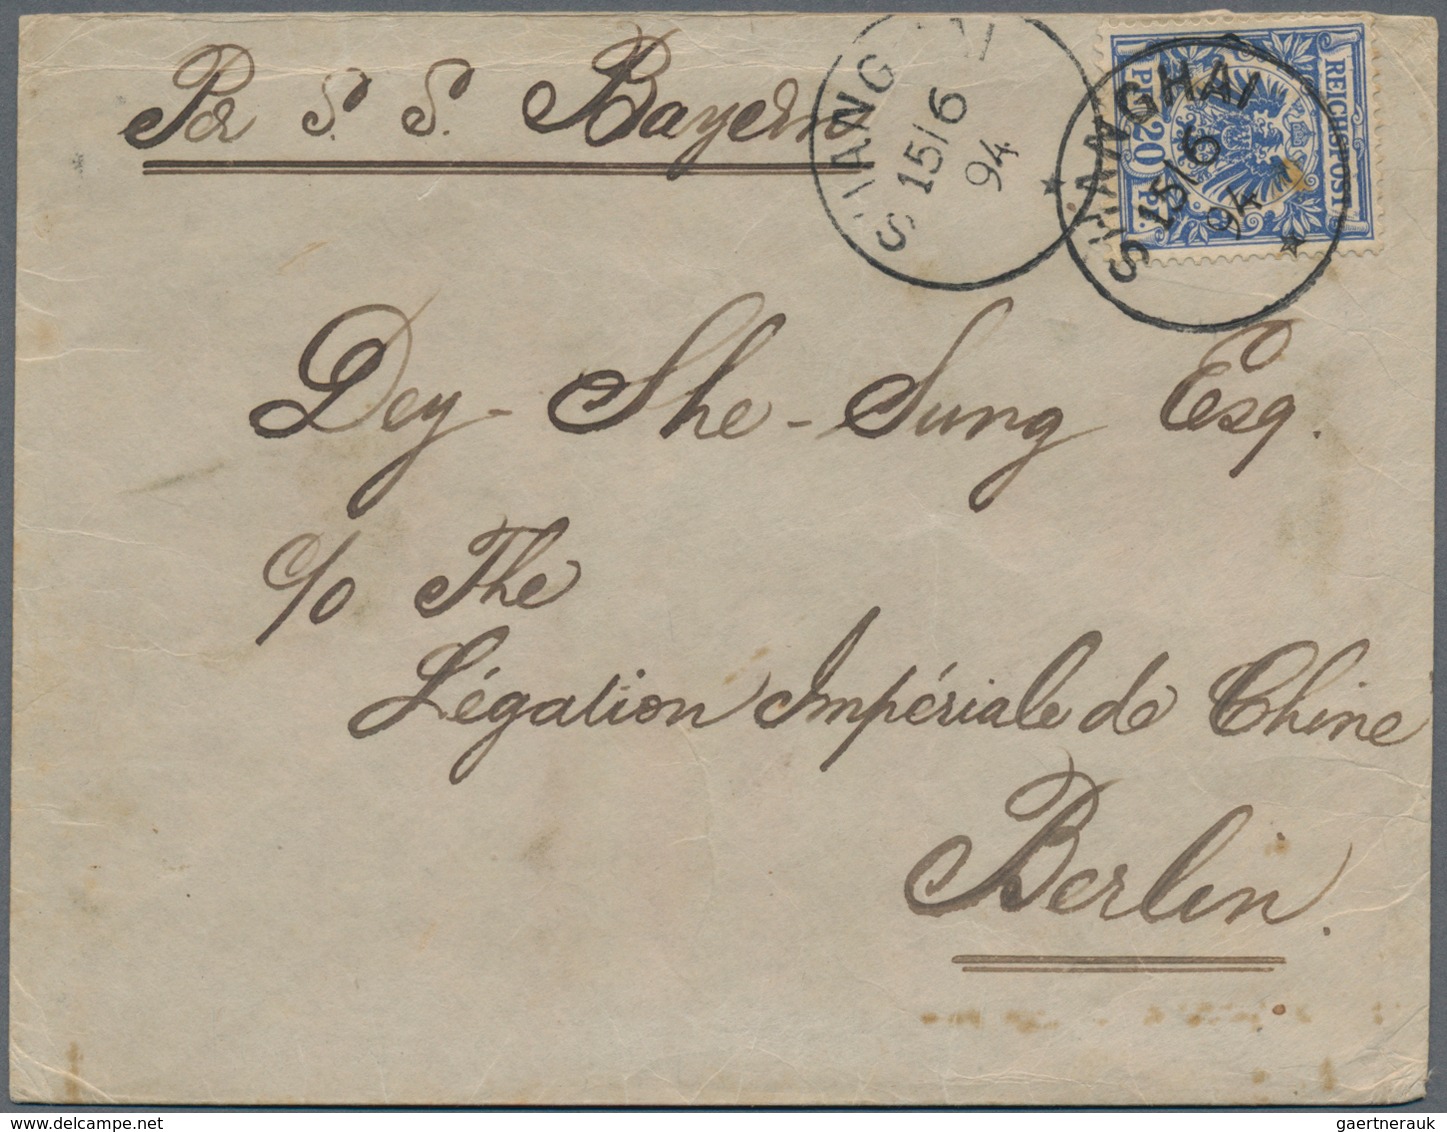 Per S. S. Bayern
SHANGHAI
15/6
94
SHANGHAI
15/6
94
REICHSPOST
PF. 20 PF.
Dey-She-Sung Esq.
c/o The
Légation Impériale de Chine
Berlin.
gaertnerauk